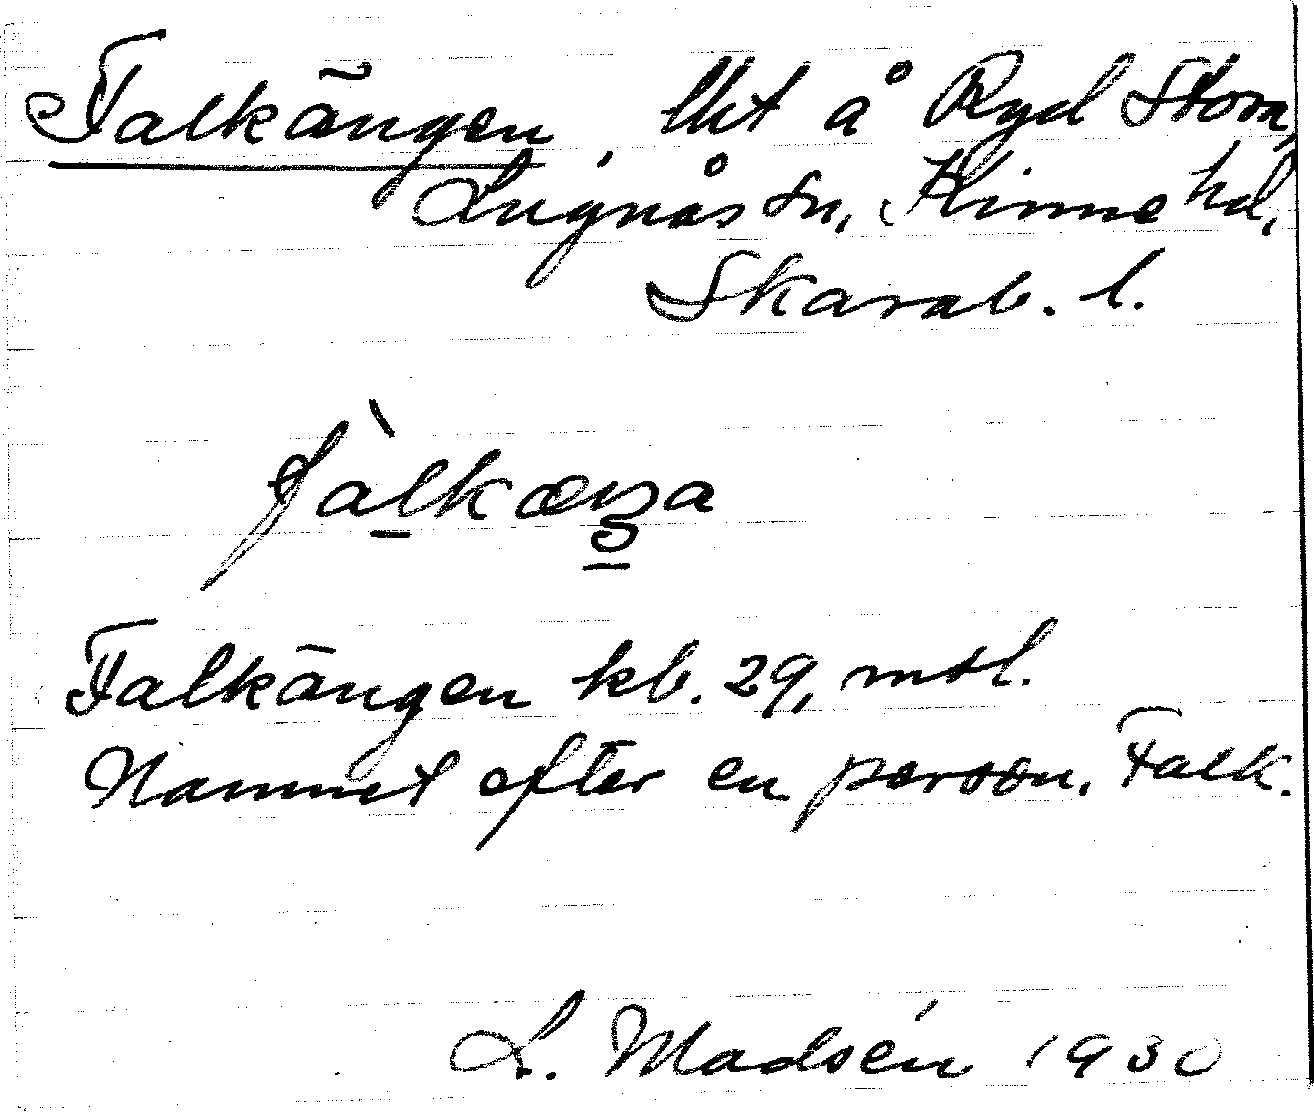 Falkängen, lht å Ryd Stora,
Lugnås sn, Kinne hd,
Skarab. l.
fàlkæŋa
Falkängen kb. 29, mtl.
Namnet efter en person, Falk.
L. Madsén 1930